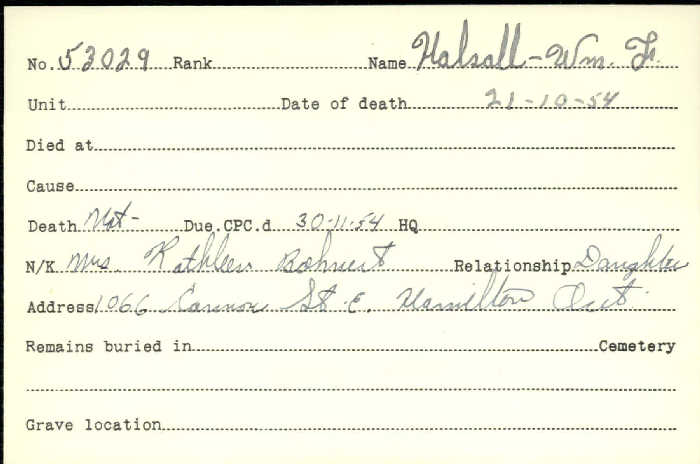 No. 53029 Rank Name Halsall - Wm. F.
Unit Date of death 21-10-54
Died at
Cause
Death Not - Due CPC.d 30-11-54 HQ
N/K Mrs. Kathleen Bohnert Relationship Daughter
Address 1066 Cannon St. E. Hamilton Ont.
Remains buried in Cemetery
Grave location